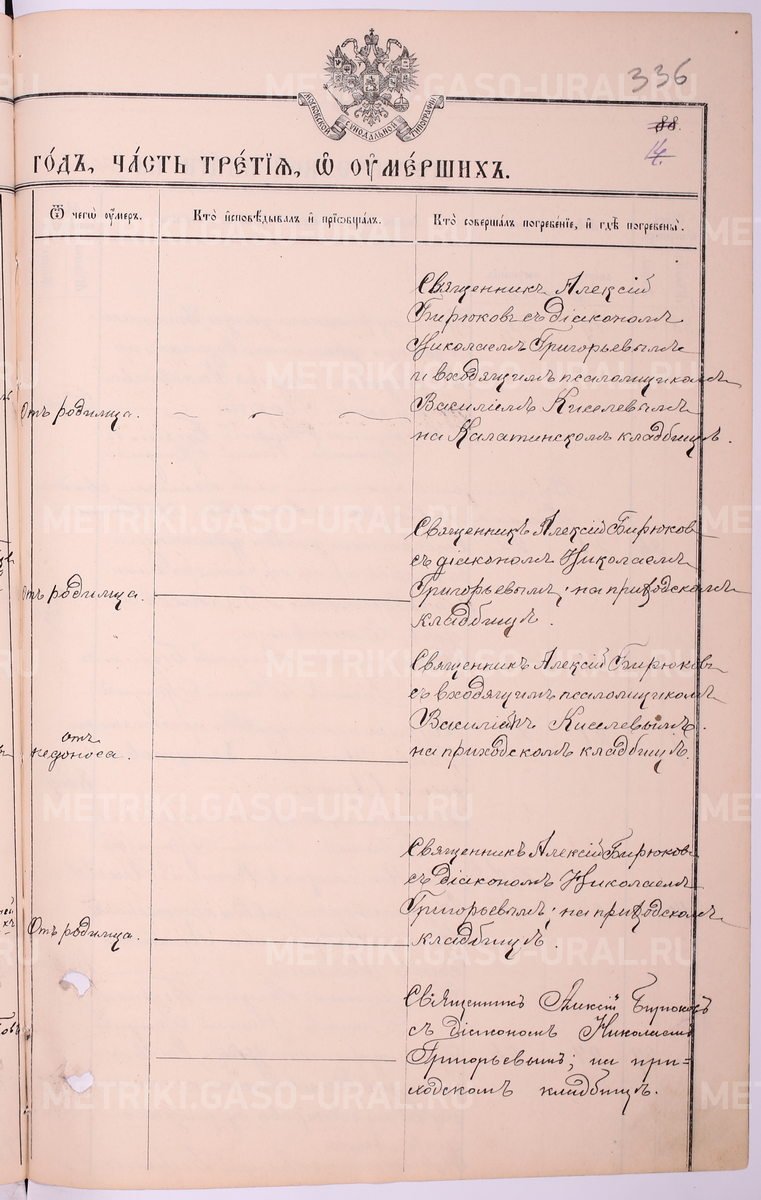 336
МОСКОВСКОЙ СУНОДАЛЬНОЙ ТИПОГРАФІИ
88.
14.
ГО́ДЪ, ЧА́СТЬ ТРЕ́ТІЯ, Ѽ ОУМЕ́РШИХЪ.
Ѿ чегѡ̀ оу́меръ.
Кто̀ и҆сповѣ́дывалъ и҆ прїѡбща́лъ.
Кто̀ соверша́лъ погребе́нїе, и҆ гдѣ̀ погребены̀.
Священникъ Алексій
Бирюковъ съ діакономъ
Николаемъ Григорьевымъ
и входящимъ псаломщикомъ
Отъ родимца.
Василіемъ Киселевымъ
на Калатинскомъ кладбищѣ.
Священникъ Алексій Бирюковъ
съ діакономъ Николаемъ
Отъ родимца.
Григорьевымъ; на приходскомъ
кладбищѣ.
Священникъ Алексій Бирюковъ
съ входящимъ псаломщикомъ
Василіемъ Киселевымъ.
отъ
недоноса.
на приходскомъ кладбищѣ.
Священникъ Алексій Бирюковъ
съ діакономъ Николаемъ
Григорьевымъ; на приходскомъ
Отъ родимца.
кладбищѣ.
Священникъ Алексій Бирюковъ
съ діакономъ Николаемъ
Григорьевымъ; на при=
ходскомъ кладбищѣ.
METRIKI.GASO-URAL.RU